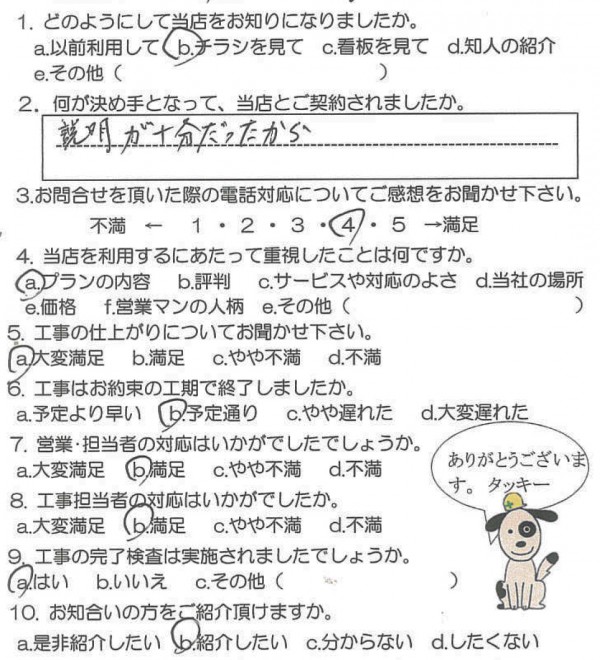 1. どのようにして当店をお知りになりましたか。
a.以前利用して b.チラシを見て c.看板を見て d.知人の紹介
e.その他（ ）
2. 何が決め手となって、当店とご契約されましたか。
説明が十分だったから
3.お問合せを頂いた際の電話対応についてご感想をお聞かせ下さい。
不満 ← 1・2・3・4・5 →満足
4. 当店を利用するにあたって重視したことは何ですか。
a.プランの内容 b.評判 c.サービスや対応のよさ d.当社の場所
e.価格 f.営業マンの人柄 e.その他（ ）
5. 工事の仕上がりについてお聞かせ下さい。
a.大変満足 b.満足 c.やや不満 d.不満
6. 工事はお約束の工期で終了しましたか。
a.予定より早い b.予定通り c.やや遅れた d.大変遅れた
7. 営業・担当者の対応はいかがでしたでしょうか。
a.大変満足 b.満足 c.やや不満 d.不満
8. 工事担当者の対応はいかがでしたか。
a.大変満足 b.満足 c.やや不満 d.不満
9. 工事の完了検査は実施されましたでしょうか。
a.はい b.いいえ c.その他（ ）
10. お知合いの方をご紹介頂けますか。
a.是非紹介したい b.紹介したい c.分からない d.したくない
ありがとうございま
す。 タッキー